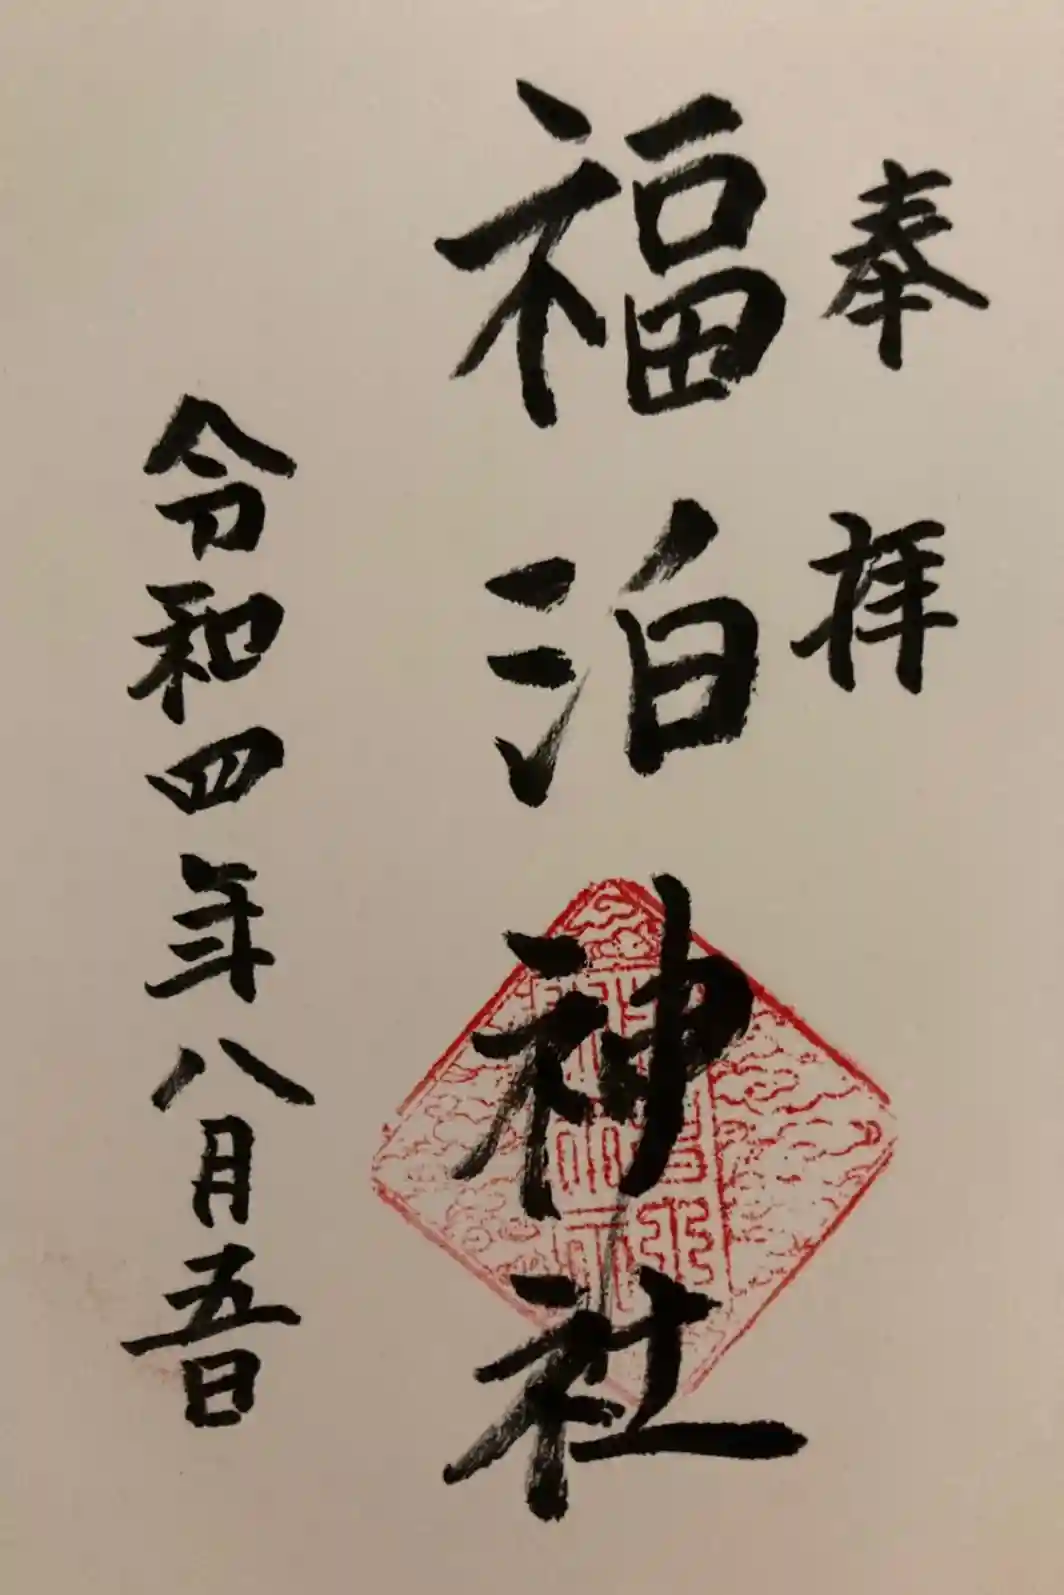 奉拝
福泊神社
令和四年八月五日